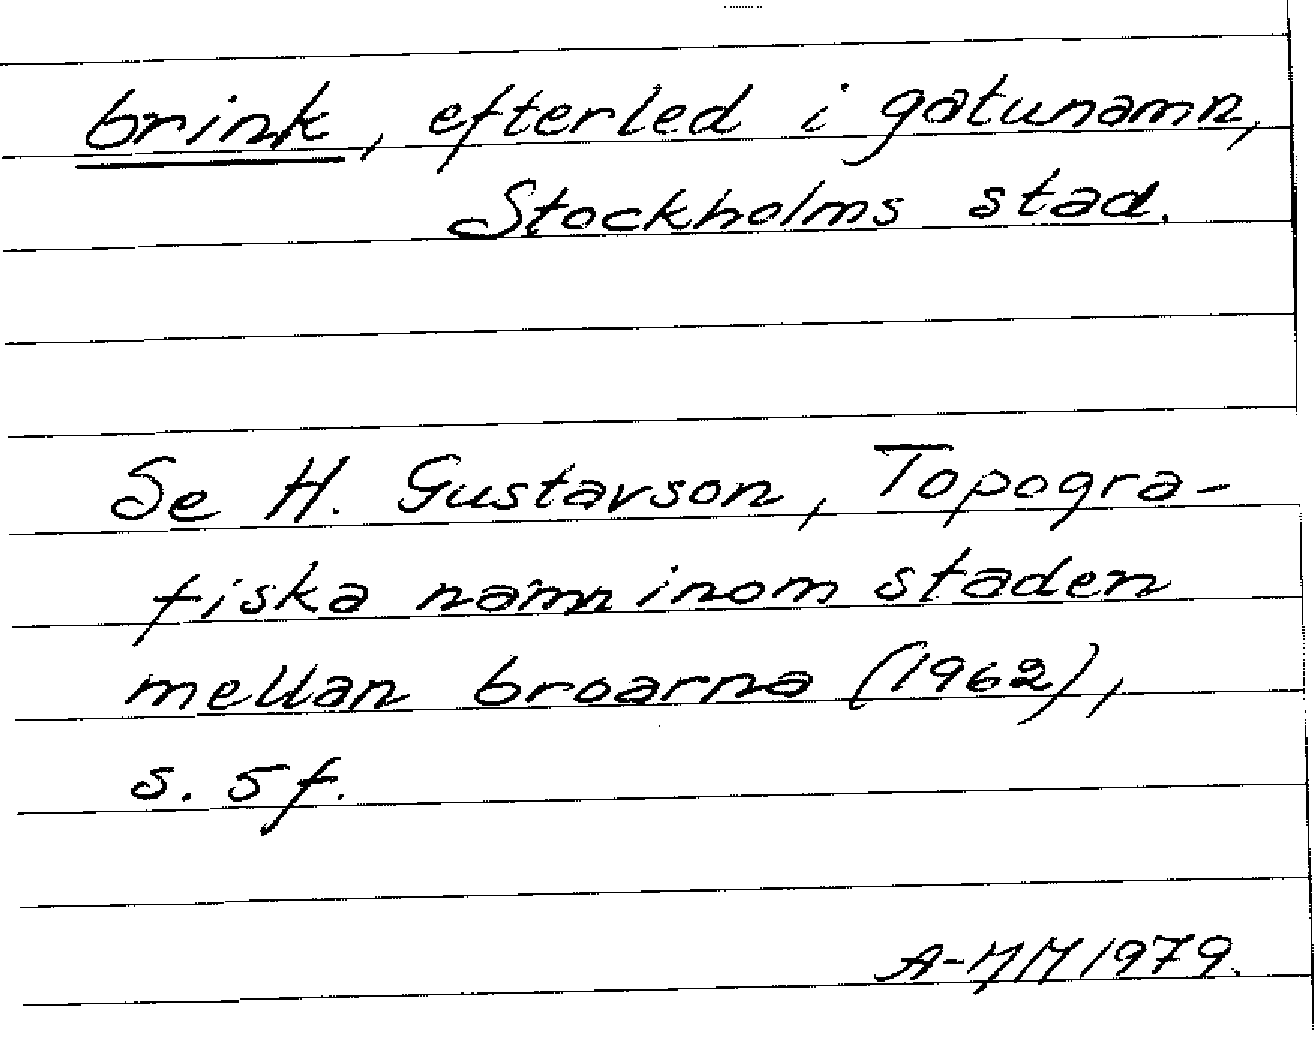 brink, efterled i gatunamn,
Stockholms stad.
Se H. Gustavson, Topogra-
fiska namn inom staden
mellan broarna (1962),
s. 5 f.
A-MM 1979.